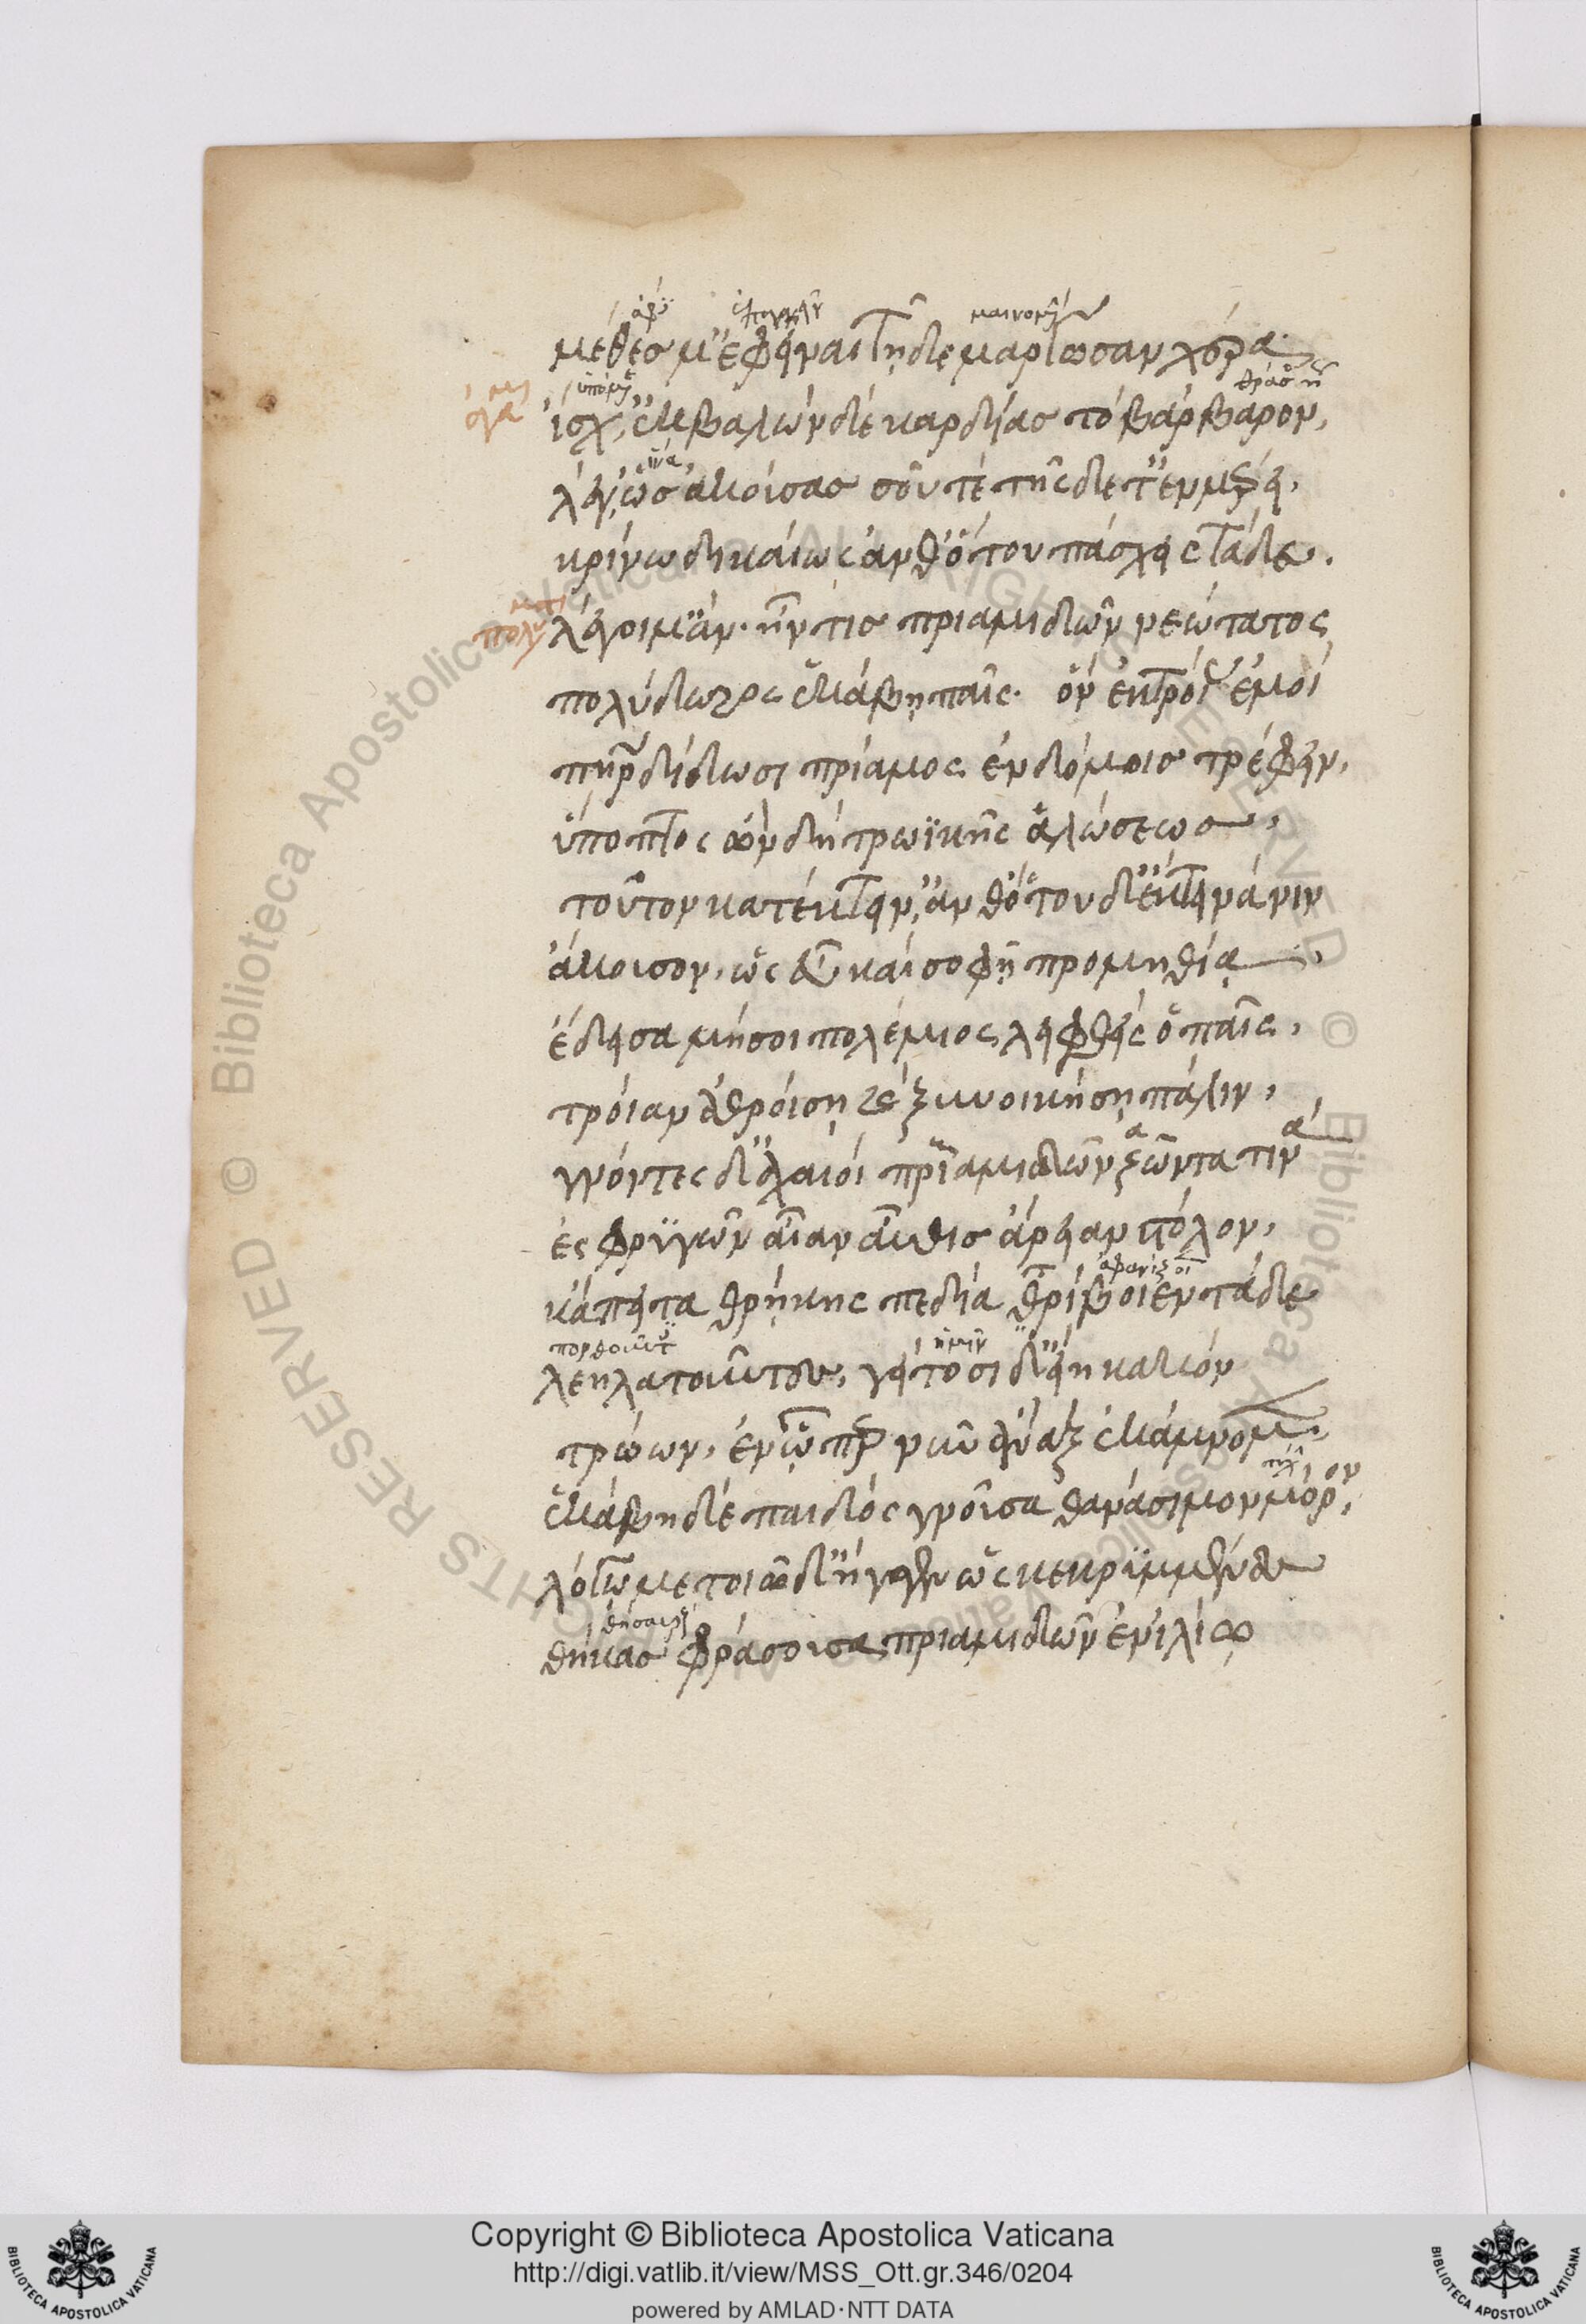 μέθες μ' ἐφεῖναι τῇδε μαργῶσαν χέρα
ἴσχ', ἐκβαλὼν δὲ καρδίας τὸ βάρβαρον,
λέγ', ὡς ἀκούσας σοῦ τε τῆς δέ τ' ἐν μέρει,
κρίνω δικαίως ἀνθ' ὅτου πάσχεις τάδε.
πολυ λέγοιμ' ἄν. ἦν τις πριαμιδῶν νεώτατος
πολύδωρος ἑκάβης παῖς. ὃν ἐκ τροίας ἐμοὶ
πατὴρ δίδωσι πρίαμος ἐν δόμοις τρέφειν,
ὕποπτος ὢν δὴ τρωϊκῆς ἁλώσεως,
τοῦτον κατέκτειν', ἀνθ' ὅτου δ' ἔκτεινά νιν
ἄκουσον, ὡς εὖ καὶ σοφῇ προμηθίᾳ,
ἔδεισα μή σοι πολέμιος λειφθεὶς ὁ παῖς,
τροίαν ἀθροίσῃ καὶ ξυνοικήσῃ πάλιν,
γνόντες δ' ἀχαιοὶ πριαμιδῶν ζῶντα τινὰ
ἐς φρυγῶν αἶαν αὖθις ἄρειαν στόλον,
ἀφανίζοι
κἄπειτα θρήκης πεδία τρίβοιεν τάδε
ἡμῖν
λεηλατοῦντες, γείτοσι δ' εἴη κακὸν
τρώων, ἐν ᾧπερ νῦν ἄναξ ἐκάμνομεν,
ἑκάβη δὲ παιδὸς γνοῦσα θανάσιμον μόρον,
λόγῳ με τοιῷδ' ἤγαγεν ὡς κεκρυμμένας
θήκας φράσουσα πριαμιδῶν ἐν ἰλίῳ
Copyright © Biblioteca Apostolica Vaticana
http://digi.vatlib.it/view/MSS_Ott.gr.346/0204
powered by AMLAD·NTT DATA